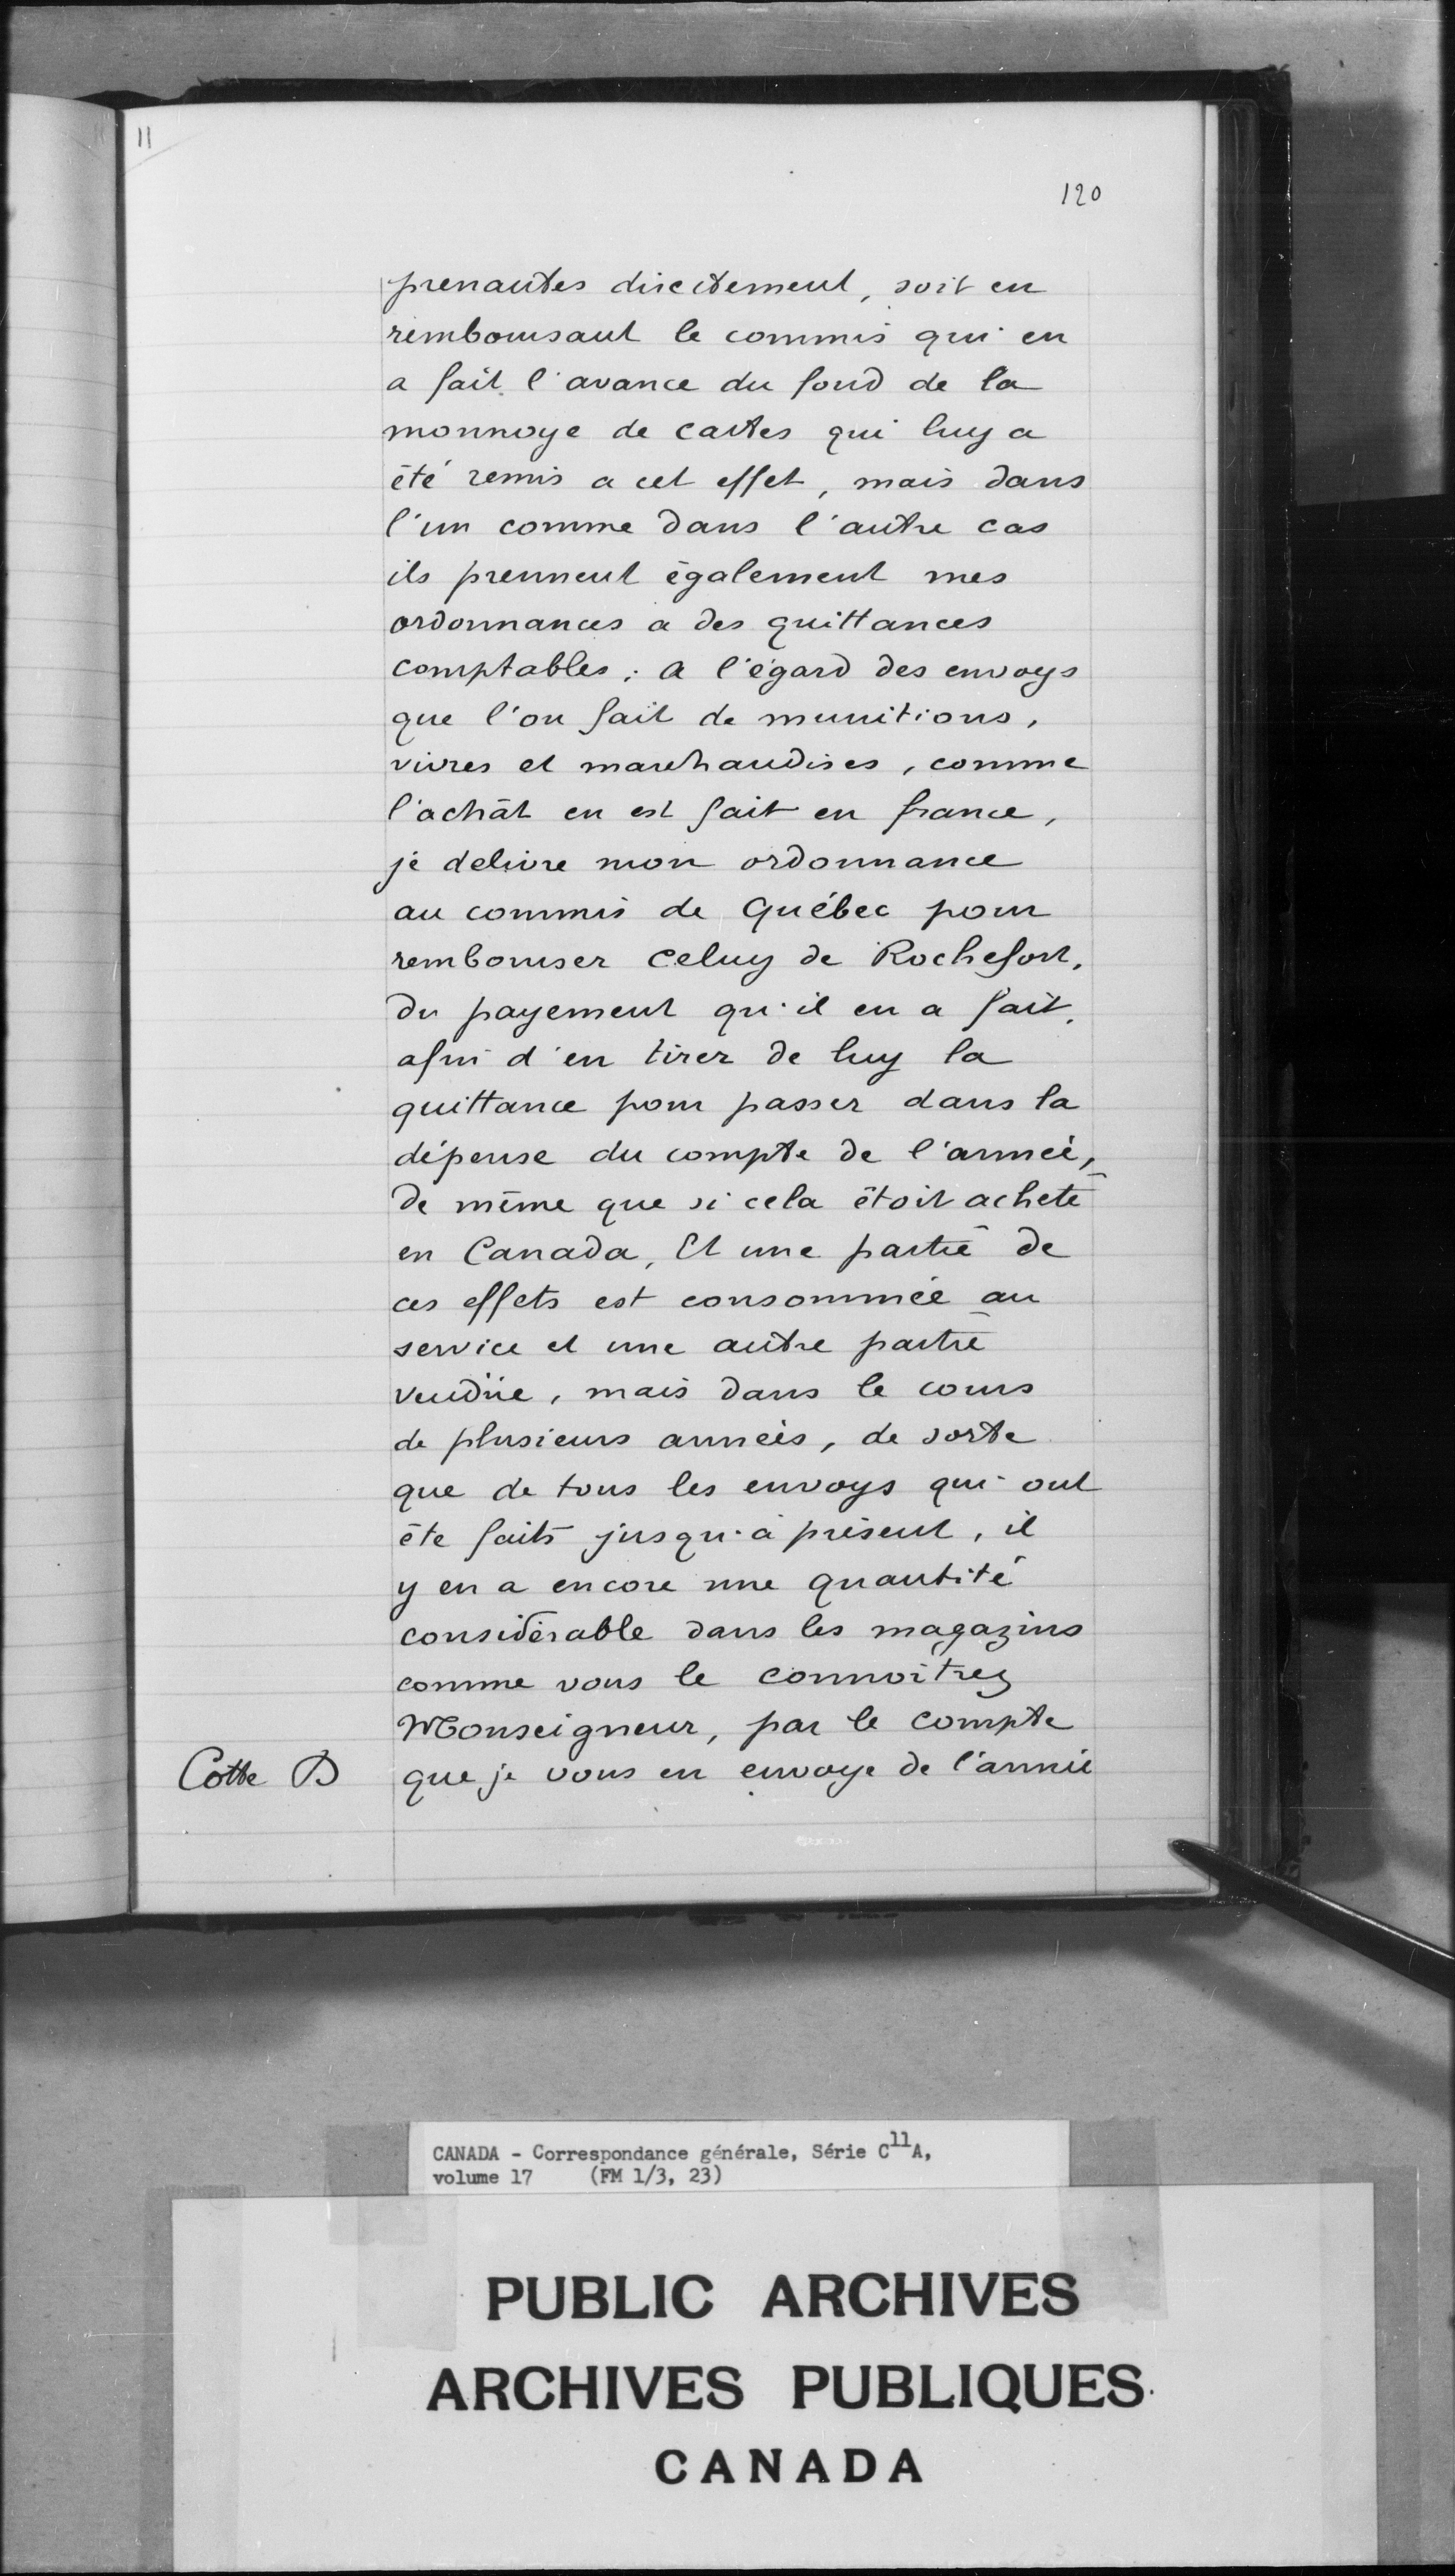 11
120
prenantes directement, soit en
remboursant le commis qui en
a fait l'avance du fond de la
monnoye de cartes qui luy a
été remis a cet effet, mais dans
l'un comme dans l'autre cas
ils prennent également mes
ordonnances a des quittances
comptables; a l'égard des envoys
que l'on fait de munitions,
vivres et marchandises, comme
l'achât en est fait en france,
je delivre mon ordonnance
au commis de Québec pour
rembourser celuy de Rochefort,
du payement qu'il en a fait,
afin d'en tirer de luy la
quittance pour passer dans la
dépense du compte de l'année,
de même que si cela étoit acheté
en Canada, Et une partie de
ces effets est consommée au
service et une autre partie
vendüe, mais dans le cours
de plusieurs années, de sorte
que de tous les envoys qui ont
éte faits jusqu'a présent, il
y en a encore une quantité
considérable dans les magazins
comme vous le connoîtrez
Monseigneur, par le compte
Cotte B que je vous en envoye de l'année
CANADA - Correspondance générale, Série C11A,
volume 17 (FM 1/3, 23)
PUBLIC ARCHIVES
ARCHIVES PUBLIQUES
CANADA